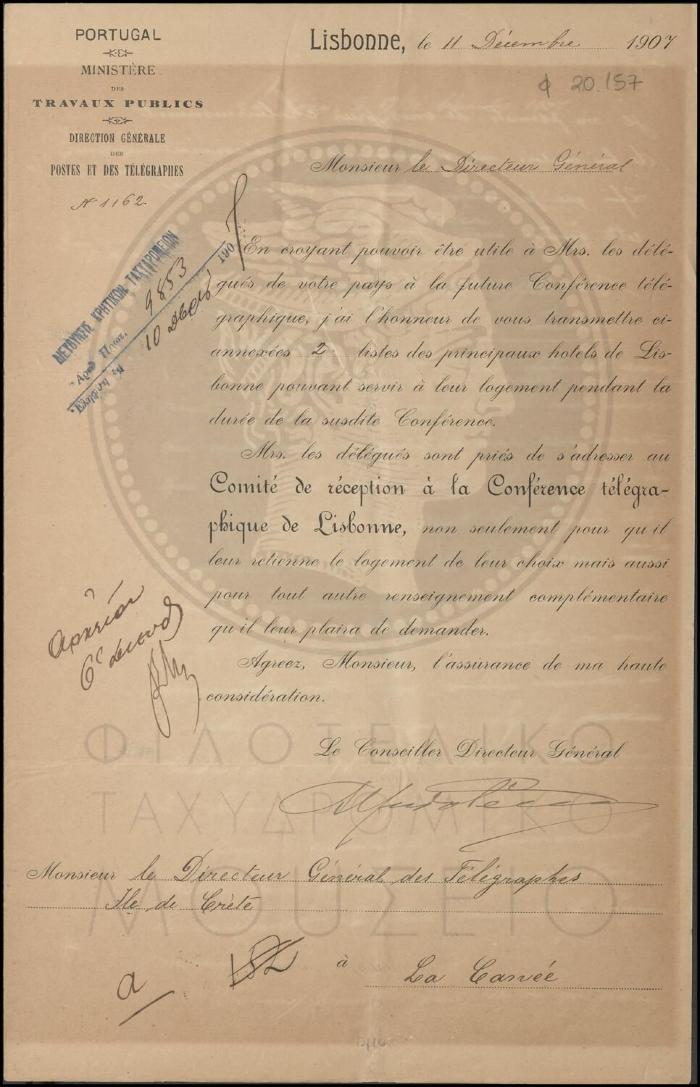 PORTUGAL
MINISTÈRE
DES
TRAVAUX PUBLICS
DIRECTION GÉNÉRALE
DES
POSTES ET DES TÉLÉGRAPHES
Nº 1162
Lisbonne, le 11 Décembre 1907
20.157
Monsieur le Directeur Général
ΔΙΕΥΘΥΝΣΙΣ ΚΡΗΤΙΚΩΝ ΤΑΧΥΔΡΟΜΕΙΩΝ
9853
190
10
En croyant pouvoir être utile à Mrs. les délé-
gués de votre pays à la future Conférence télé-
graphique, j'ai l'honneur de vous transmettre ci-
annexées 2 listes des principaux hotels de Lis-
bonne pouvant servir à leur logement pendant la
durée de la susdite Conférence.
Mrs. les délégués sont priés de s'adresser au
Comité de réception à la Conférence télégra-
phique de Lisbonne, non seulement pour qu'il
leur retienne le logement de leur choix mais aussi
pour tout autre renseignement complémentaire
qu'il leur plaira de demander.
Agreez, Monsieur, l'assurance de ma haute
considération.
Le Conseiller Directeur Général
ΦΙΛΟΤΕΛΙΚΟ
ΤΑΧΥΔΡΟΜΙΚΟ
ΜΟΥΣΕΙΟ
Monsieur le Directeur Général des Télégraphes
Ile de Crète
a
à La Canée